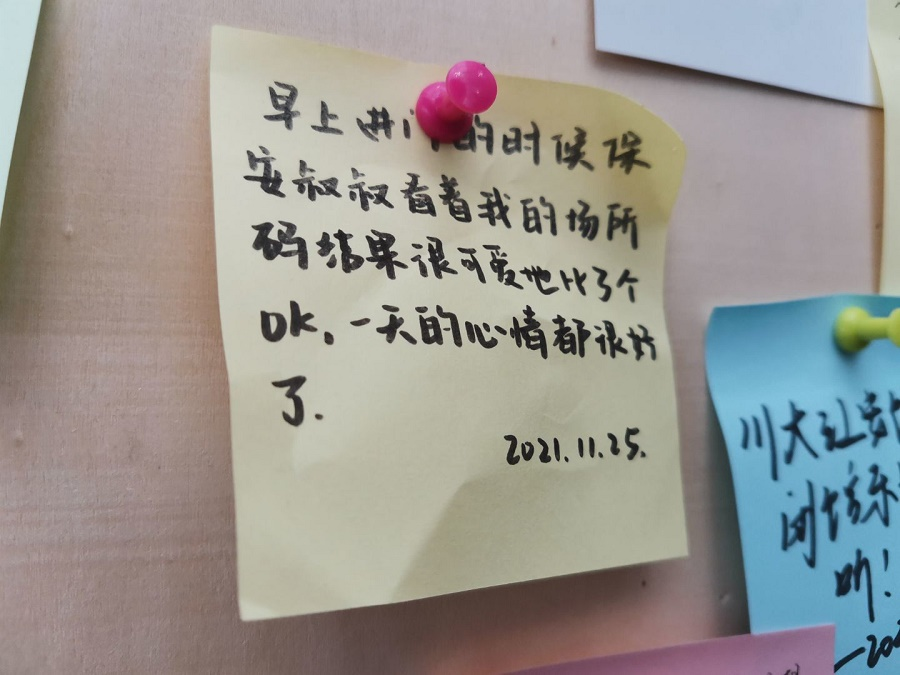 早上进门的时候保
安叔叔看着我的场所
码结果很可爱地比了个
OK,一天的心情都很好
了.
2021.11.25.
川大江安
听!